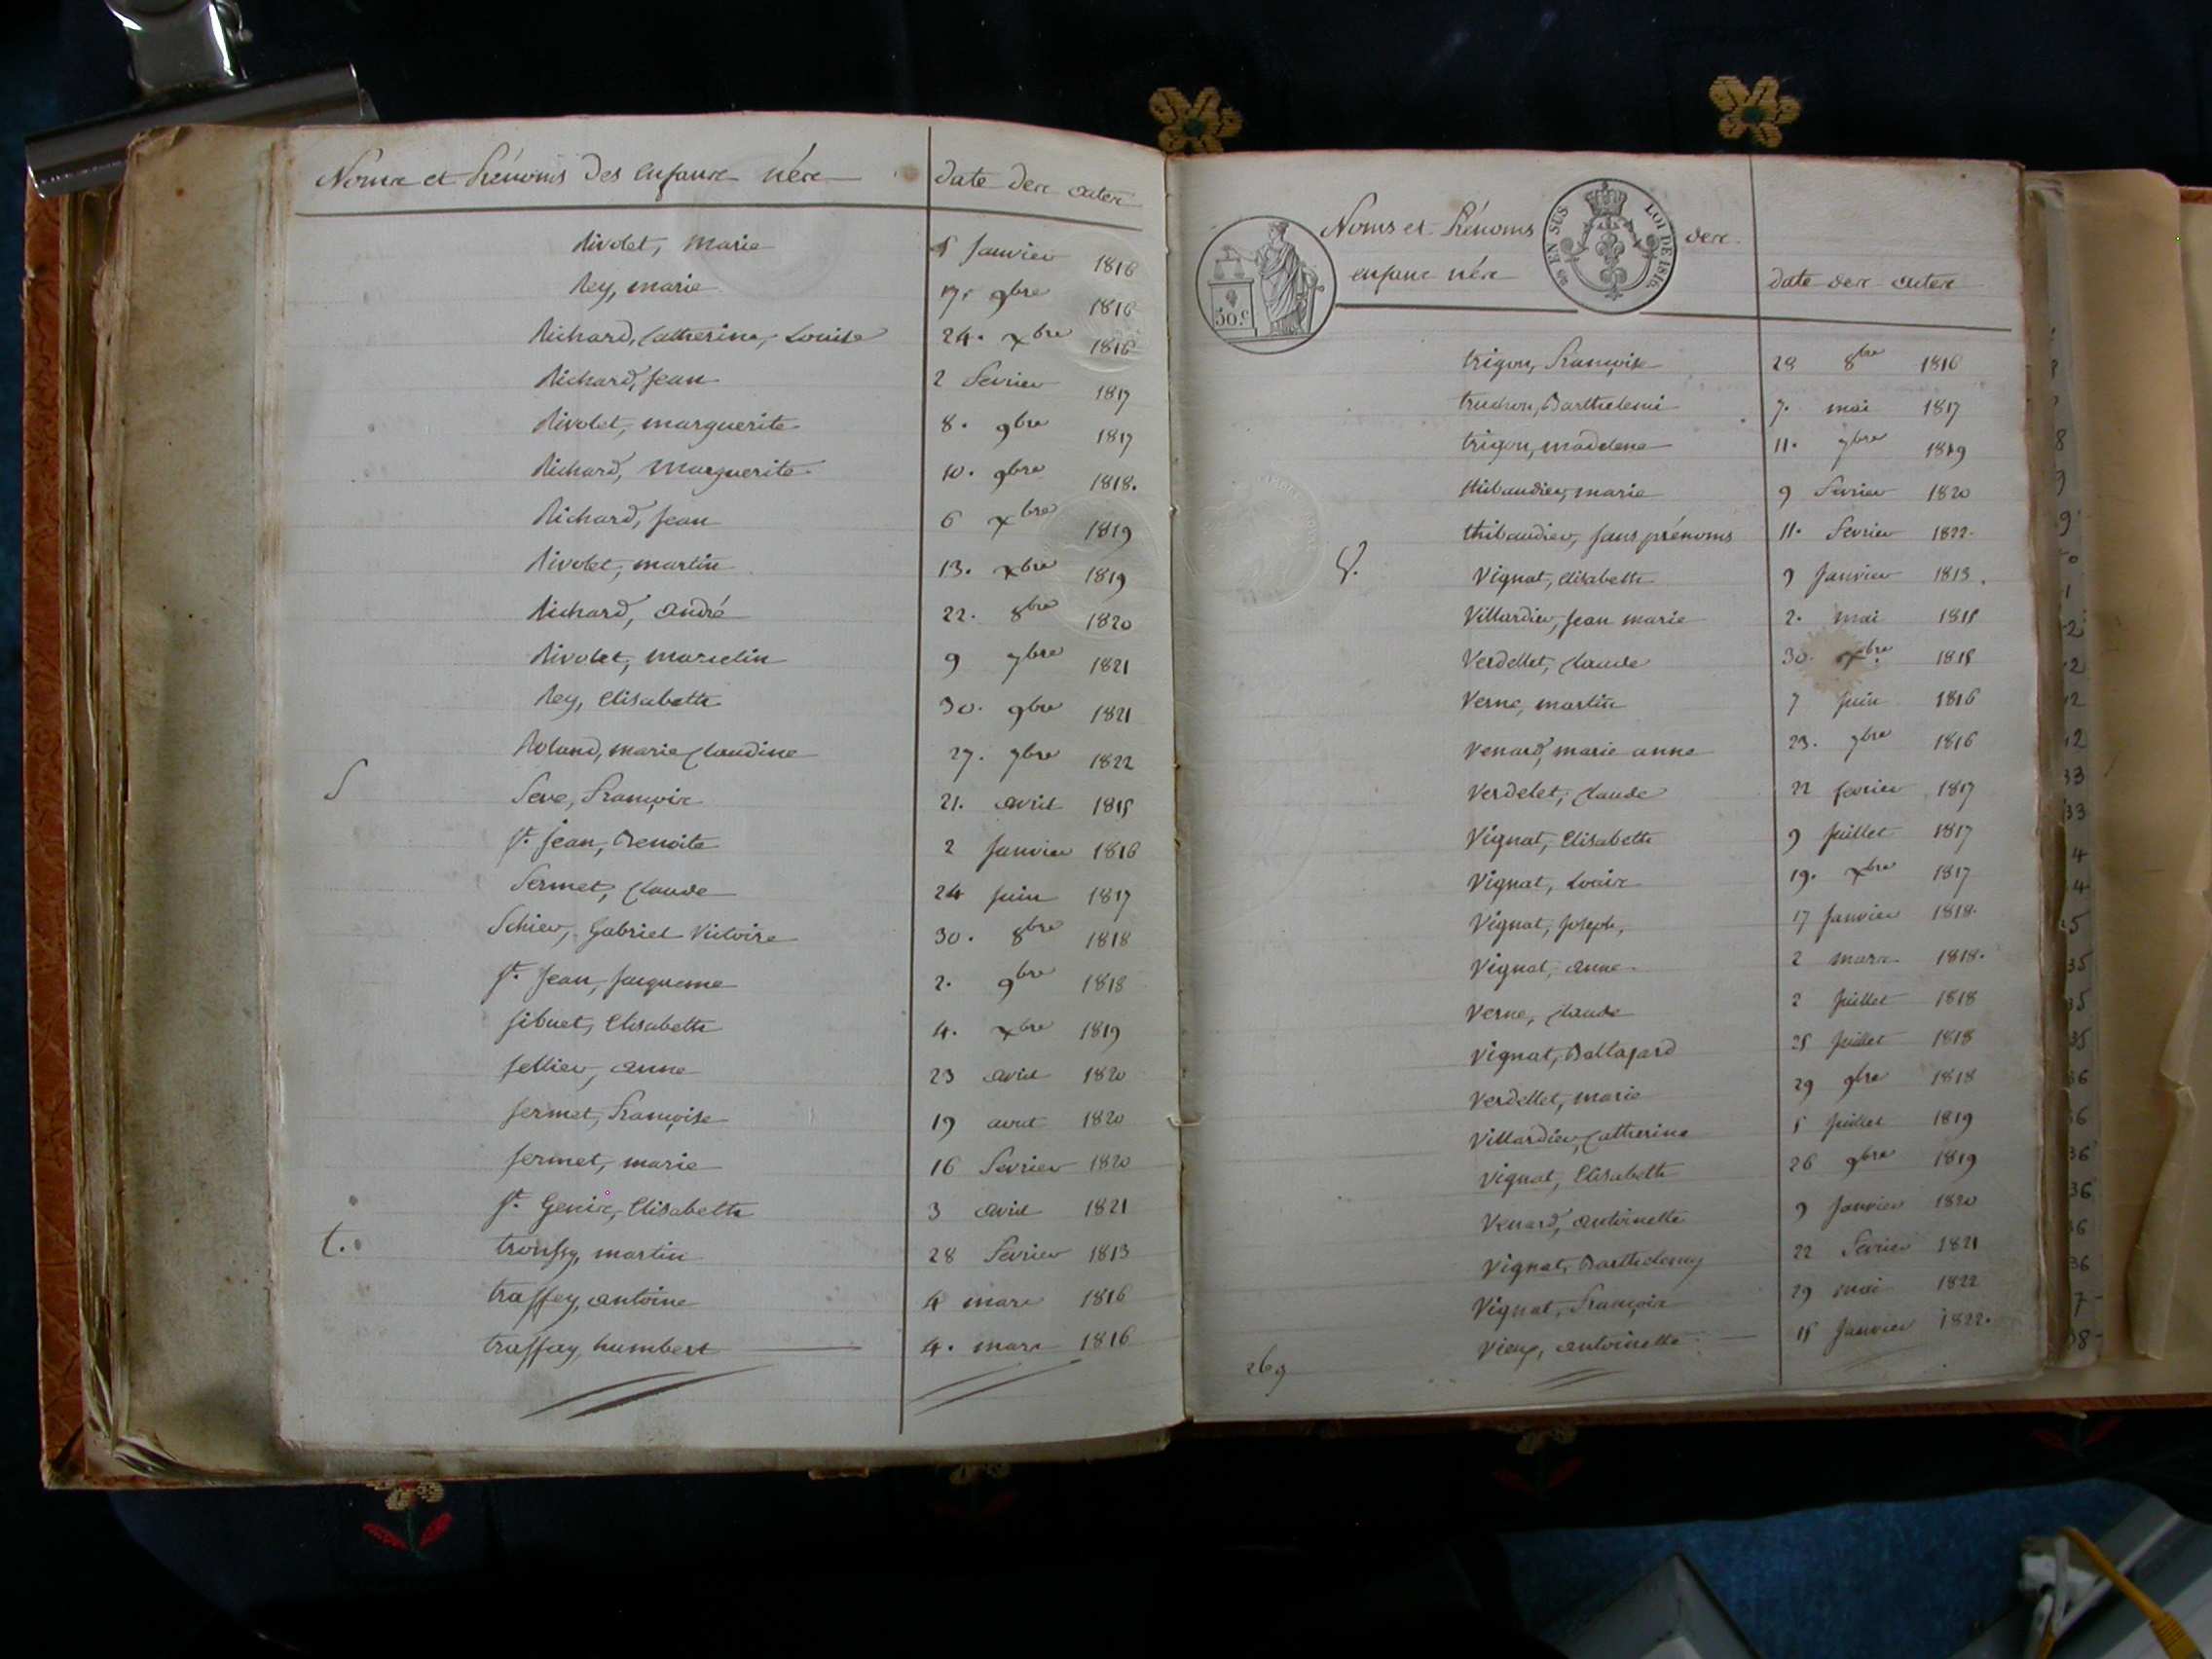 Noms et Prénoms des enfans nés
date des actes
Rivolet, Marie 5 Janvier 1816
Rey, marie 17. 9bre 1816
Richard, Catherine, Louise 24. xbre 1816
Richard, Jean 2 Fevrier 1817
Rivolet, marguerite 8. 9bre 1817
Richard, Marguerite 10. 9bre 1818.
Richard, Jean 6 xbre 1819
Rivolet, martin 13. xbre 1819
Richard, andré 22. 8bre 1820
Rivolet, marcelin 9 7bre 1821
Rey, Elisabeth 30. 9bre 1821
Roland, marie Claudine 27. 7bre 1822
S Seve, François 21. avril 1815
St. Jean, Benoite 2 Janvier 1816
Sermet, Claude 24 Juin 1817
Schier, Gabriel Victoire 30. 8bre 1818
St. Jean, Jacqueme 2. 9bre 1818
Sibuet, Elisabeth 4. xbre 1819
Sellier, anne 23 avril 1820
Sermet, Françoise 19 aout 1820
Sermet, marie 16 Fevrier 1820
St. Genis, Elisabeth 3 avril 1821
t. troussy, martin 28 Fevrier 1813
traffey, antoine 4 mars 1816
traffay, humbert 4. mars 1816
Noms et Prénoms des
enfans nés
date des actes
50.c
EN SUS
LOI DE 1816.
trigon, Françoise 28 8bre 1816
truchon, Barthelemi 7. mai 1817
trigon, madelene 11. 7bre 1819
thibaudier, marie 9 Fevrier 1820
thibaudier, sans prénoms 11. Fevrier 1822.
V. Vignat, Elisabeth 9 Janvier 1813.
Villardier, Jean marie 2. mai 1815
Verdellet, Claude 30. xbre 1815
Verne, martin 7 Juin 1816
Venard, marie anne 23. 7bre 1816
Verdelet, Claude 22 fevrier 1817
Vignat, Elisabeth 9 Juillet 1817
Vignat, Louis 19. xbre 1817
Vignat, Joseph, 17 Janvier 1818.
Vignat, anne. 2 mars 1818.
Verne, Claude 2 Juillet 1818
Vignat, Baltazard 25 Juillet 1818
Verdellet, marie 29 9bre 1818
Villardier, Catherine 5 Juillet 1819
Vignat, Elisabeth 26 9bre 1819
Venard, antoinette 9 Janvier 1820
Vignat, Barthelemy 22 Fevrier 1821
Vignat, François 29 mai 1822
Vieux, antoinette 15 Janvier 1822.
269